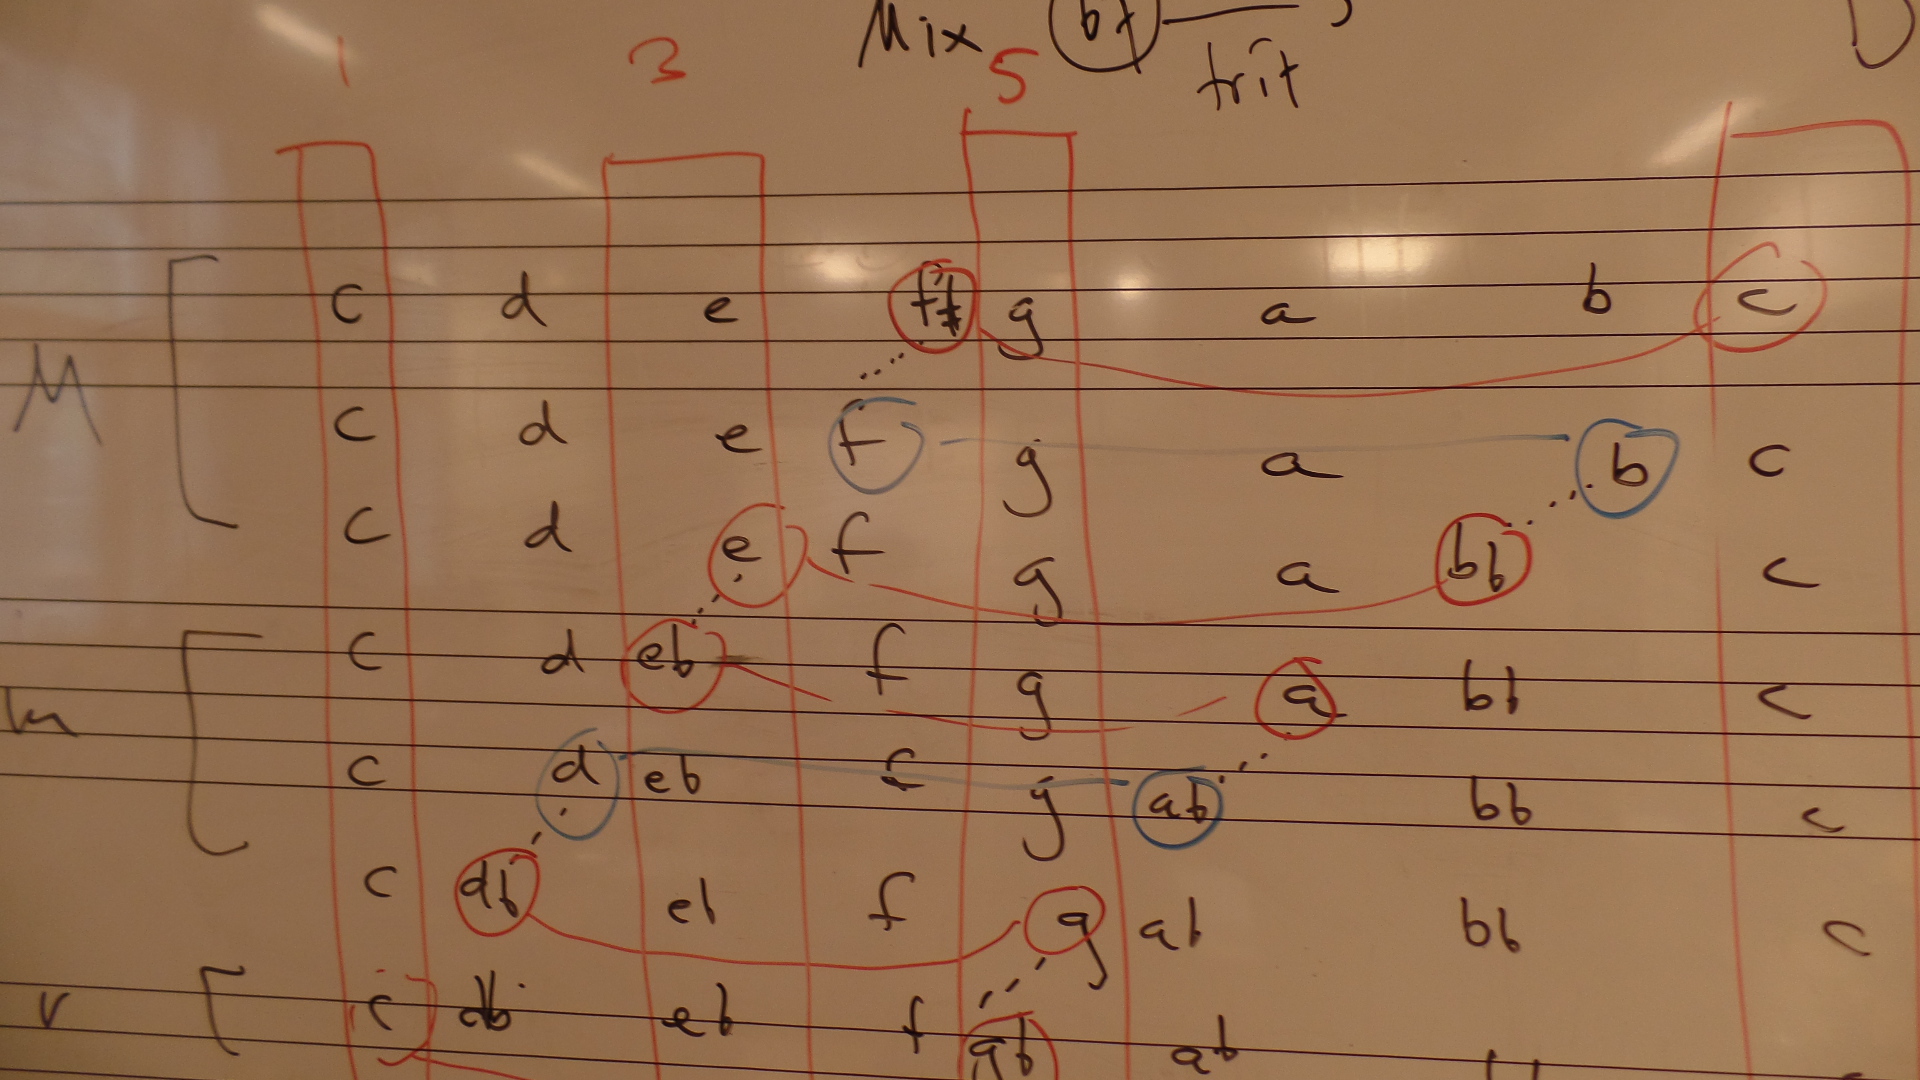 Mix
trit
1 3 5
c d e f# g a b c
M
c d e f g a b c
c d e f g a bb c
c d eb f g a bb c
m
c d eb f g ab bb c
c db eb f g ab bb c
v c db eb f gb ab